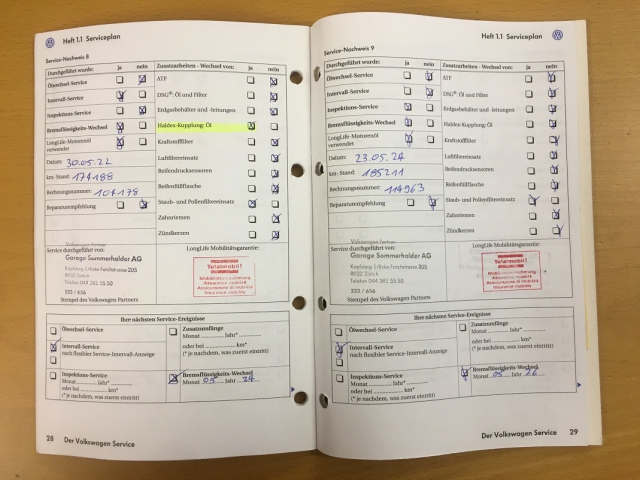 Heft 1.1 Serviceplan
Service-Nachweis 8
Durchgeführt wurde: ja nein
Ölwechsel-Service
Intervall-Service
Inspektions-Service
Bremsflüssigkeits-Wechsel
LongLife-Motorenöl
verwendet
Datum: 30.05.22
km-Stand: 174188
Rechnungsnummer: 104178
Reparaturempfehlung
Zusatzarbeiten - Wechsel von: ja nein
ATF
DSG®-Öl und Filter
Erdgasbehälter und -leitungen
Haldex-Kupplung: Öl
Kraftstofffilter
Luftfiltereinsatz
Reifendrucksensoren
Reifenfüllflasche
Staub- und Pollenfiltereinsatz
Zahnriemen
Zündkerzen
Service durchgeführt von:
Volkswagen Partner
Garage Sommerhalder AG
8032 Zürich
Telefon 044 381 55 50
323 / 656
Stempel des Volkswagen Partners
LongLife Mobilitätsgarantie:
Totalmobil!
Mobilitätsversicherung
Assurance mobilité
Assicurazione di mobilità
Insurance mobility
Ihre nächsten Service-Ereignisse
Ölwechsel-Service
Intervall-Service
nach flexibler Service-Intervall-Anzeige
Inspektions-Service
Monat ............ Jahr* ............
oder bei ............ km*
(* je nachdem, was zuerst eintritt)
Zusatzumfänge
Monat ............ Jahr* ............
oder bei ............ km*
(* je nachdem, was zuerst eintritt)
Bremsflüssigkeits-Wechsel
Monat 05 Jahr 24
28 Der Volkswagen Service
Heft 1.1 Serviceplan
Service-Nachweis 9
Durchgeführt wurde: ja nein
Ölwechsel-Service
Intervall-Service
Inspektions-Service
Bremsflüssigkeits-Wechsel
LongLife-Motorenöl
verwendet
Datum: 23.05.24
km-Stand: 195211
Rechnungsnummer: 114963
Reparaturempfehlung
Zusatzarbeiten - Wechsel von: ja nein
ATF
DSG®-Öl und Filter
Erdgasbehälter und -leitungen
Haldex-Kupplung: Öl
Kraftstofffilter
Luftfiltereinsatz
Reifendrucksensoren
Reifenfüllflasche
Staub- und Pollenfiltereinsatz
Zahnriemen
Zündkerzen
Service durchgeführt von:
Volkswagen Partner
Garage Sommerhalder AG
8032 Zürich
Telefon 044 381 55 50
323 / 656
Stempel des Volkswagen Partners
LongLife Mobilitätsgarantie:
Totalmobil!
Mobilitätsversicherung
Assurance mobilité
Assicurazione di mobilità
Insurance mobility
Ihre nächsten Service-Ereignisse
Ölwechsel-Service
Intervall-Service
nach flexibler Service-Intervall-Anzeige
Inspektions-Service
Monat ............ Jahr* ............
oder bei ............ km*
(* je nachdem, was zuerst eintritt)
Zusatzumfänge
Monat ............ Jahr* ............
oder bei ............ km*
(* je nachdem, was zuerst eintritt)
Bremsflüssigkeits-Wechsel
Monat 05 Jahr 26
Der Volkswagen Service 29